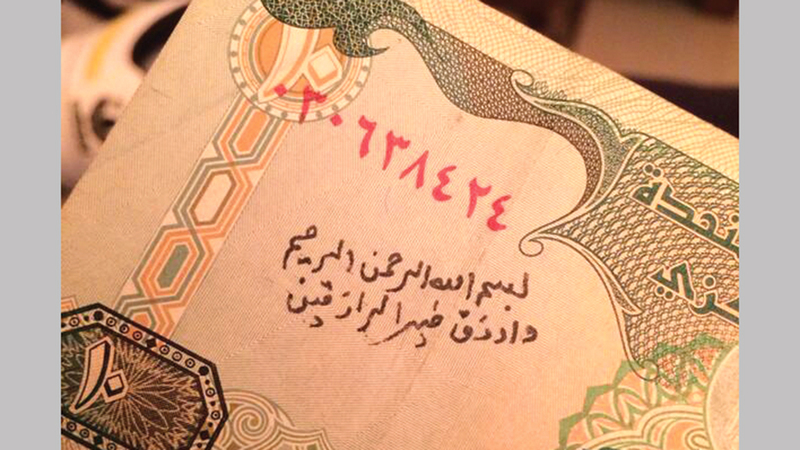 ١٠
٠٣٠٦٣٨٤٢٤
بسم الله الرحمن الرحيم
وارزق خير الرازقين
١٠